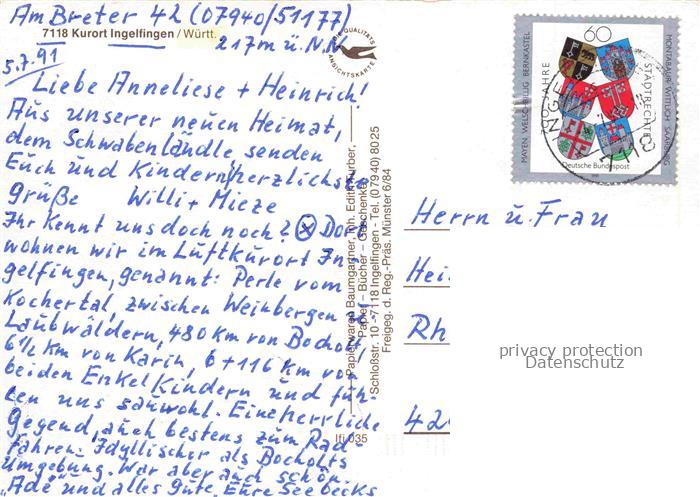 Am Breter 42 (07940/51177)
7118 Kurort Ingelfingen / Württ.
217m ü.N.N
5.7.91
Liebe Anneliese + Heinrich!
Aus unserer neuen Heimat,
dem Schwabenländle senden
Euch und Kindern herzlichste
Grüße Willi + Mieze
Ihr Kennt uns doch noch? Dort
wohnen wir im Luftkurort In-
gelfingen, genannt: Perle vom
Kochertal, zwischen Weinbergen
Laubwäldern, 480 km von Bocholt
6 1/2 km von Karin, 6 + 116 km von
beiden Enkelkindern und füh-
len uns sauwohl. Eine herrliche
Gegend, auch bestens zum Rad-
fahren. Idyllischer als Bocholts
Umgebung. War aber auch schön.
"Adé" und alles gute, Eure Seebecks
QUALITÄTS
ANSICHTSKARTE
Papierwaren Baumgartner, Inh. Edith Furber,
Papier – Bücher – Geschenke
Schloßstr. 10 - 7118 Ingelfingen - Tel. (07940) 8025
Freigeg. d. Reg.-Präs. Münster 6/84
Ifi 035
60
700 JAHRE
STADTRECHTE
MAYEN WELSCHBILLIG BERNKASTEL
MONTABAUR WITTLICH SAARBURG
Deutsche Bundespost
7118
Herrn u. Frau
Hei
Rh
42
privacy protection
Datenschutz